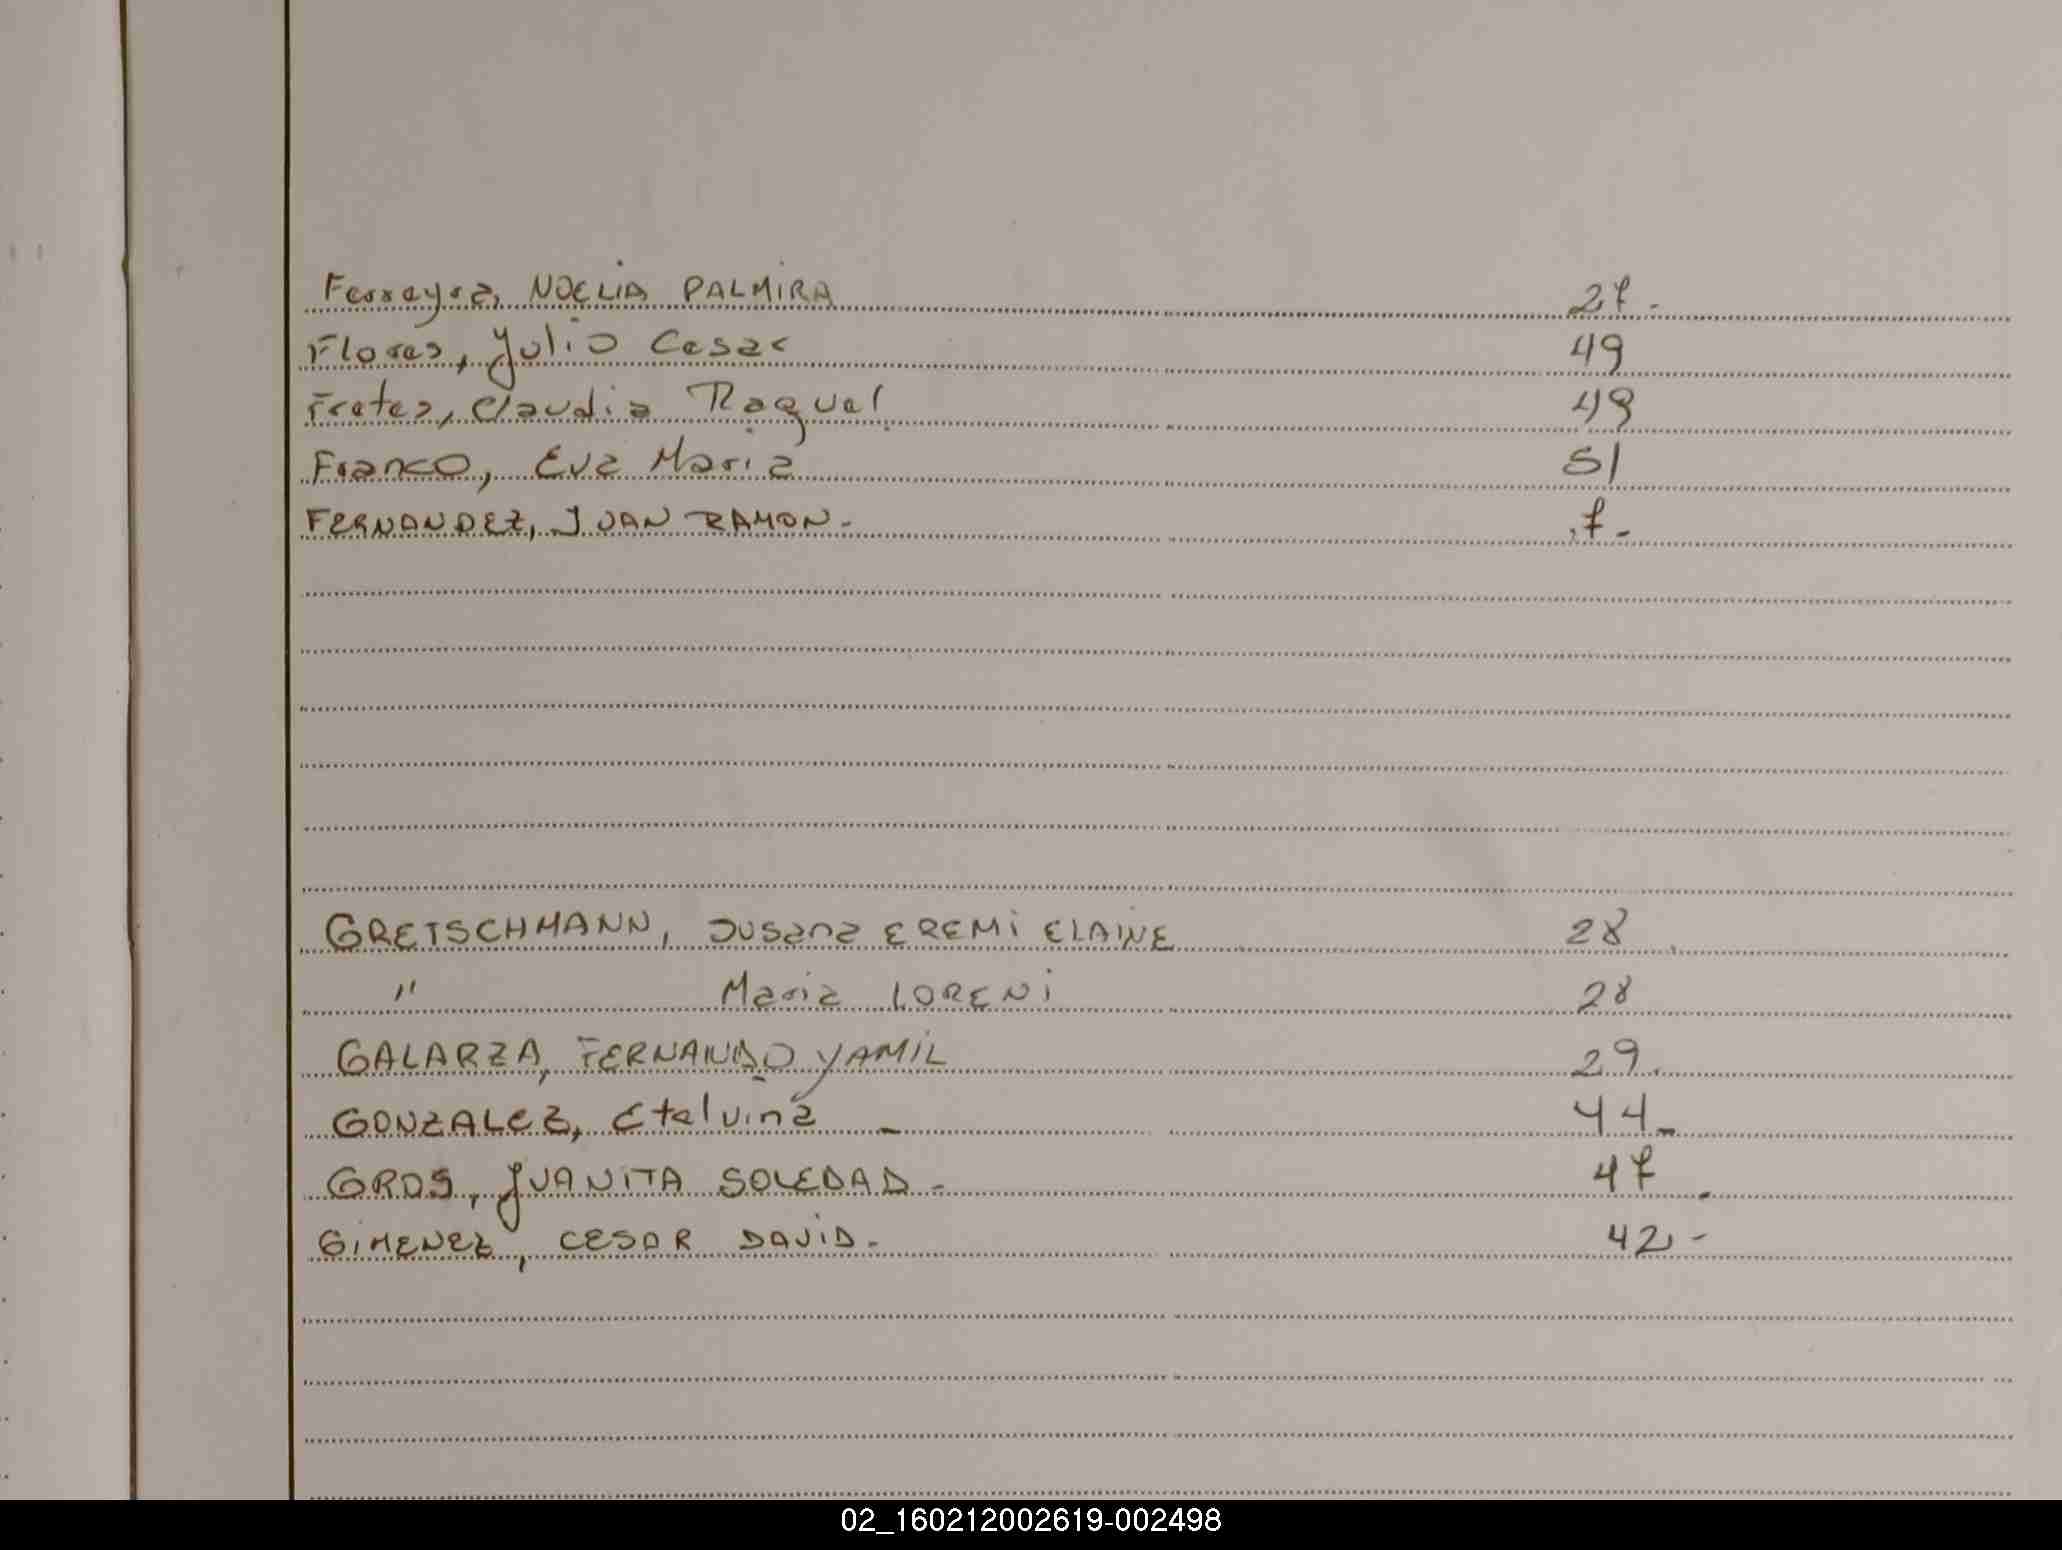 Ferreyra, NOELIA PALMIRA 27.-
Flores, Julio Cesar 49
Fretes, Claudia Raquel 49
Franco, Eva Maria 51
FERNANDEZ, JUAN RAMON.- 7.-
GRETSCHMANN, Susana EREMI ELAINE 28
" Maria LORENI 28
GALARZA, FERNANDO YAMIL 29.
GONZALEZ, Etelvina - 44-
GROS, JUANITA SOLEDAD.- 47.
GIMENEZ, CESAR DAVID.- 42.-
02_160212002619-002498